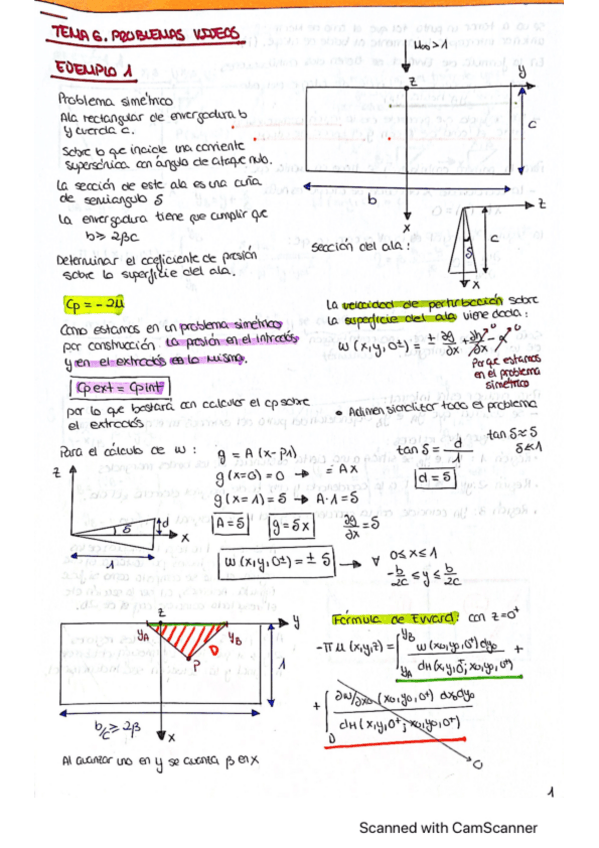 TEMA 6. PROBLEMAS VIDEOS
EJEMPLO 1
Problema simétrico
Ala rectangular de envergadura b
y cuerda c.
Sobre b que incide una corriente
supersónica con ángulo de ataque nulo.
La sección de este ala es una cuña
de semiangulo δ
La envergadura tiene que cumplir que
b ≥ 2βc
Determinar el coeficiente de presión
sobre la superficie del ala.
M∞ > 1
z
y
c
b
x
Sección del ala:
z
c
δ
x
Cp = - 2μ
Como estamos en un problema simétrico
por construcción la presión en el intradós
y en el extradós es la misma.
Cp ext = Cp int
por lo que bastará con calcular el cp sobre
el extradós
La velocidad de perturbación sobre
la superficie del ala viene dada:
ω (x,y,0±) = ± ∂g/∂x + ∂h/∂x - α
0
0
Porque estamos
en el problema
simétrico
• Adimensionalizar todo el problema
Para el cálculo de ω:
g = A (x - p1)
g (x=0) = 0 → = Ax
g (x=1) = δ → A·1 = δ
A = δ
g = δx
∂g/∂x = δ
tan δ = d/1
tan δ ≈ δ
δ ≪ 1
d = δ
z
δ
d
x
1
ω (x,y,0±) = ± δ → ∀ 0 ≤ x ≤ 1
-b/2c ≤ y ≤ b/2c
z
y
yA
yB
D
P
1
b/c ≥ 2β
x
Al avanzar uno en y se avanza β en x
Fórmula de Evvard: con z=0⁺
-π μ (x,y,z) = ∫ yA yB ω (x0,y0,0⁺) dy0 / dH (x,y,0⁺; x0,y0,0⁺) +
+ ∫ D ∂ω/∂x0 (x0,y0,0⁺) dx0dy0 / dH (x,y,0⁺; x0,y0,0⁺)
0
1
Scanned with CamScanner